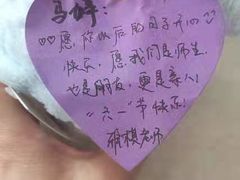 愿，你以后的日子开心
快乐，愿我们是师生，
也是朋友，更是亲人！
“六一”节快乐！
老师